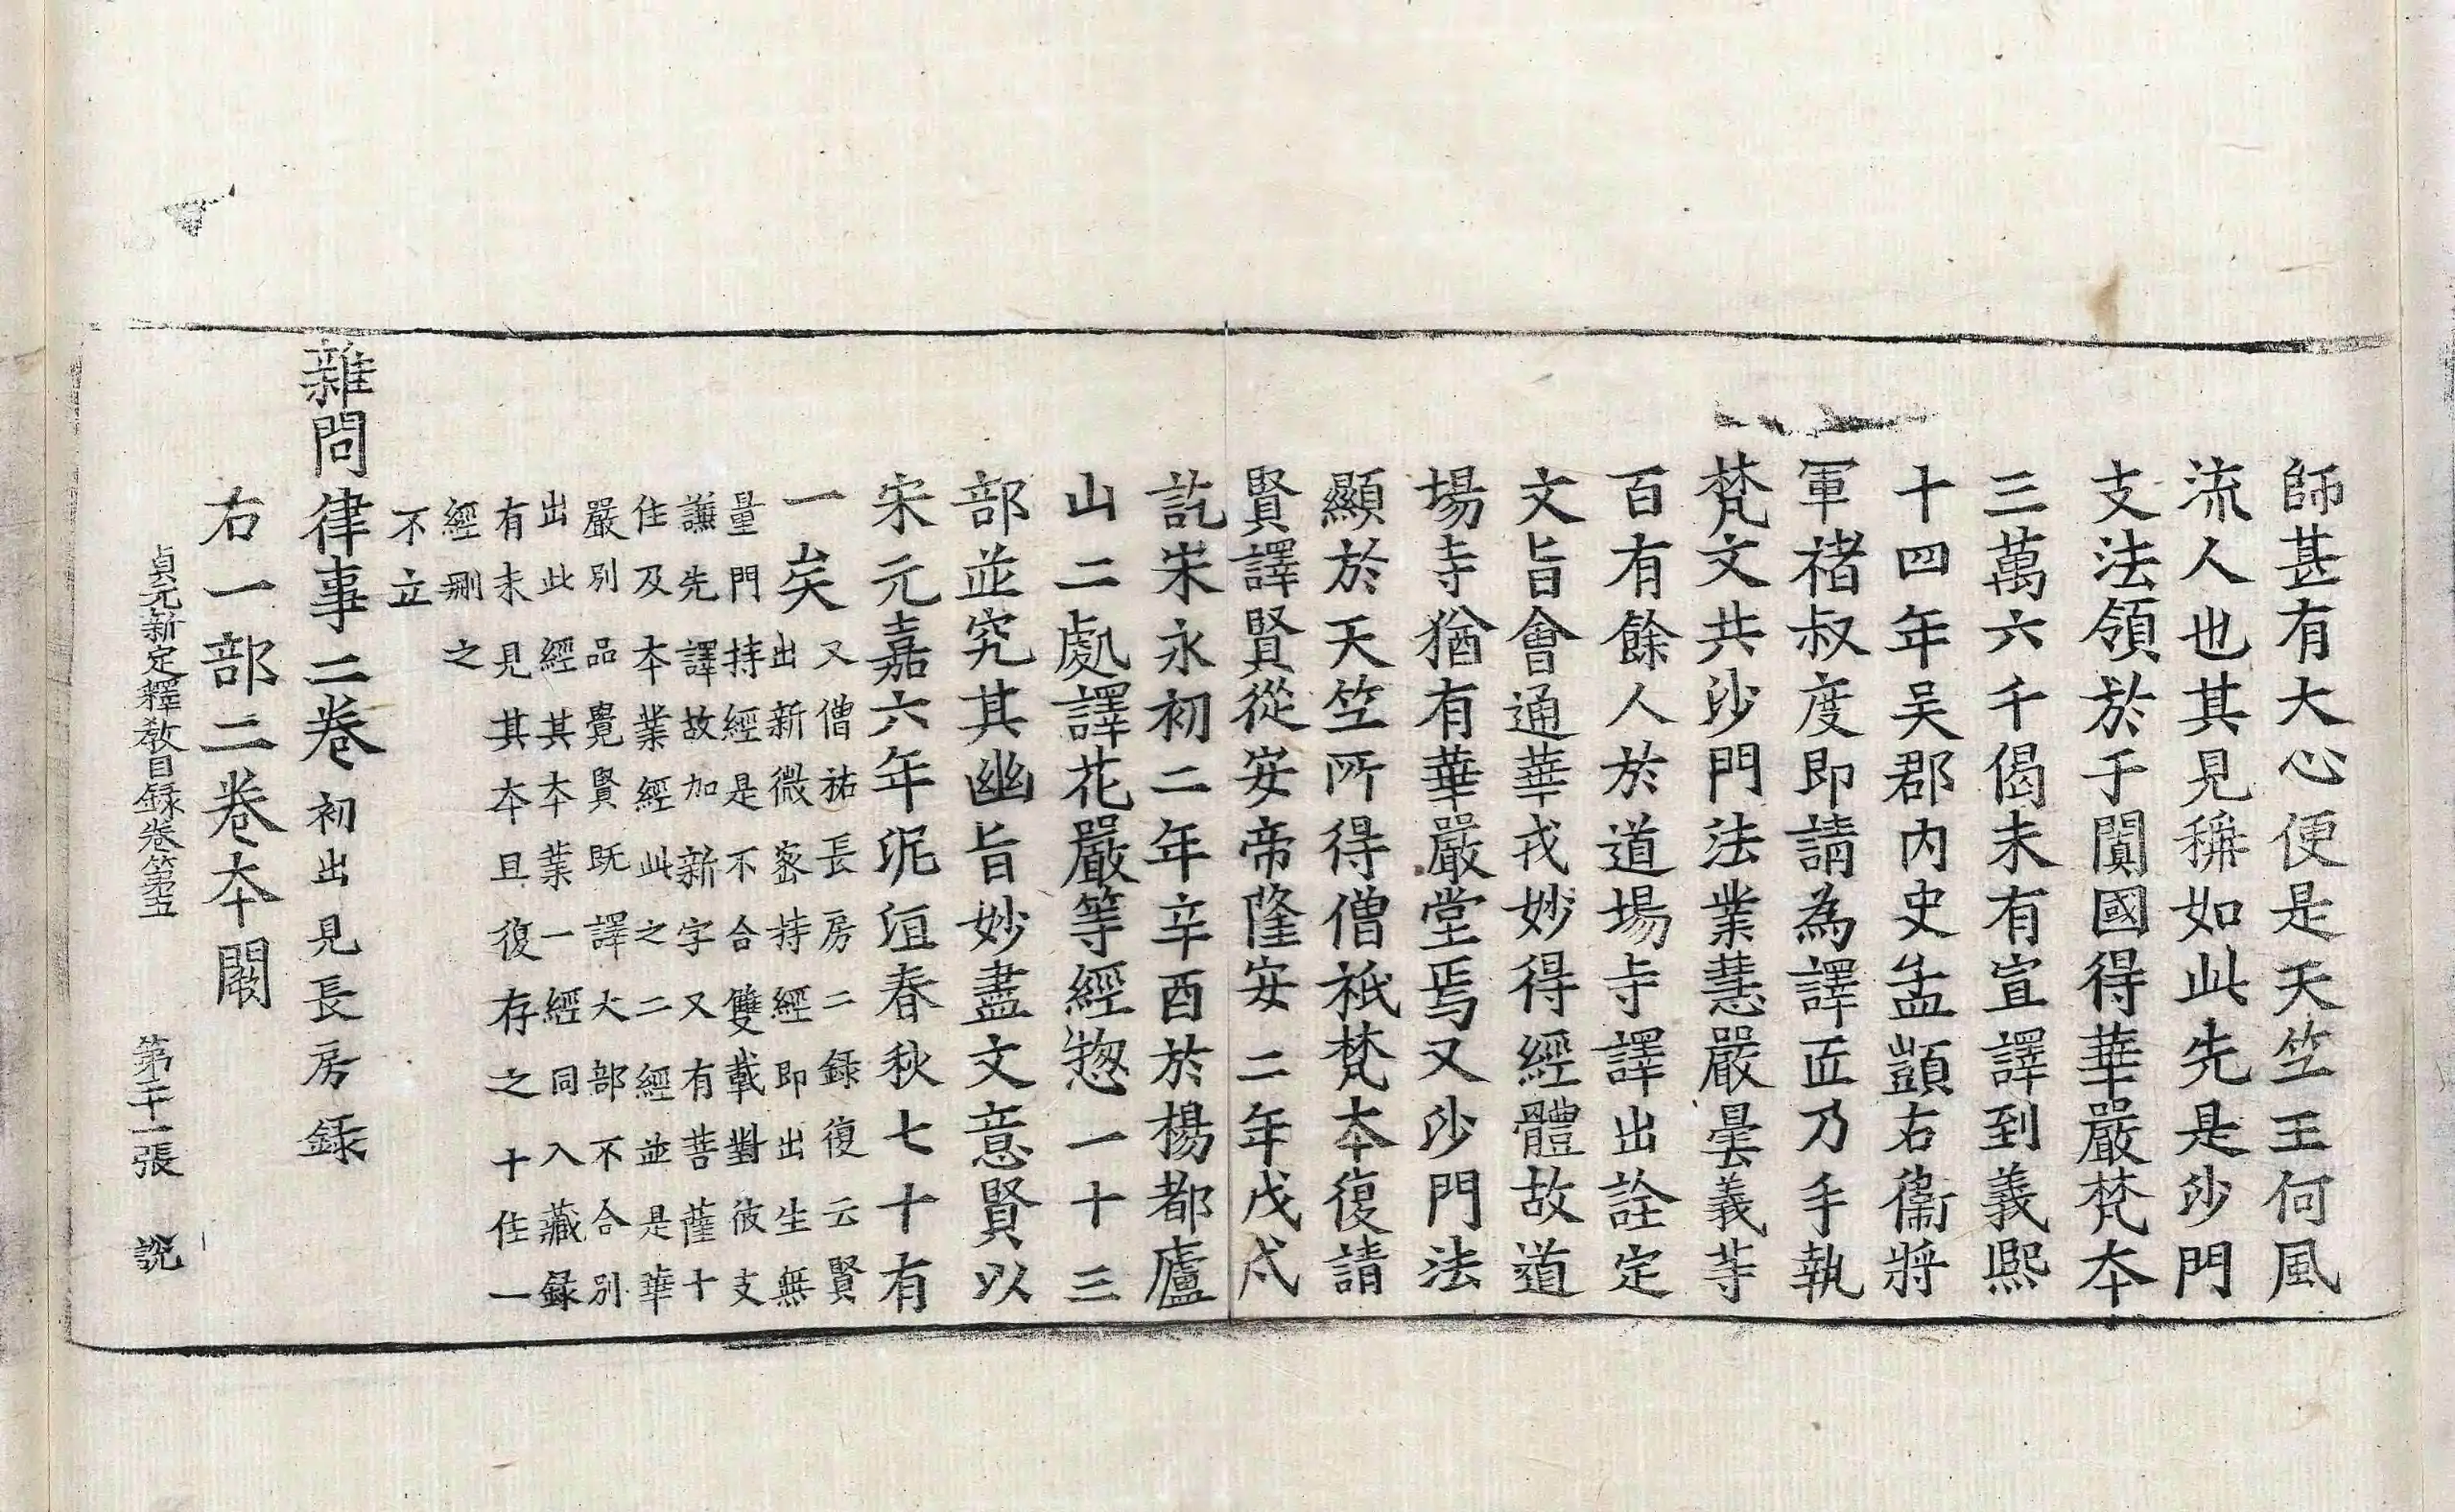 師甚有大心便是天竺王何風
流人也其見稱如此先是沙門
支法領於于闐國得華嚴梵夲
三萬六千偈未有宣譯到義熙
十四年吴郡内史孟顗右衞將
軍禇叔度即請為譯匠乃手執
梵文共沙門法業慧嚴曇義等
百有餘人於道場寺譯出詮定
文旨會通華戎妙得經體故道
場寺猶有華嚴堂焉又沙門法
顯於天竺所得僧祇梵夲復請
賢譯賢從安帝隆安二年戊戌
訖宋永初二年辛酉於楊都廬
山二處譯花嚴等經揔一十三
部並究其幽旨妙盡文意賢以
宋元嘉六年泥洹春秋七十有
一矣
又僧祐長房二録復云賢
出新微密持經即出生無
量門持經是不合雙載對彼支
謙先譯故加新字又有菩薩十
住及夲業經此之二經並是華
嚴別品覺賢既譯大部不合別
出此經其夲業一經同入藏録
有未見其夲且復存之十住一
經刪之
不立
雜問律事二卷初出見長房録
右一部二卷夲闕
貞元新定釋教目録卷第五 第二十一張 説